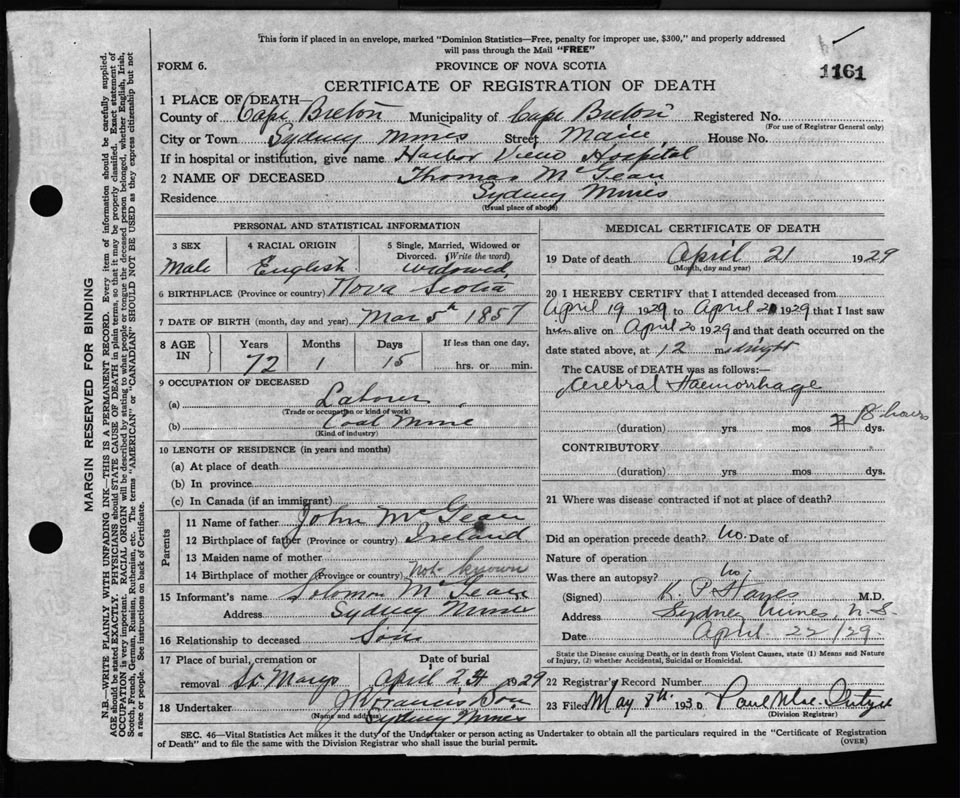 This form if placed in an envelope, marked "Dominion Statistics—Free, penalty for improper use, $300," and properly addressed
will pass through the Mail "FREE"
FORM 6.
PROVINCE OF NOVA SCOTIA
1161
CERTIFICATE OF REGISTRATION OF DEATH
1 PLACE OF DEATH—
County of Cape Breton Municipality of Cape Breton Registered No.
(For use of Registrar General only)
City or Town Sydney Mines Street Main House No.
If in hospital or institution, give name Harbor View Hospital
2 NAME OF DECEASED Thomas McGean
Residence Sydney Mines
(Usual place of abode)
PERSONAL AND STATISTICAL INFORMATION
3 SEX 4 RACIAL ORIGIN 5 Single, Married, Widowed or
Divorced. (Write the word)
Male English Widowed
6 BIRTHPLACE (Province or country) Nova Scotia
7 DATE OF BIRTH (month, day and year) Mar 5th 1857
8 AGE IN Years Months Days If less than one day,
72 1 15 hrs. or min.
9 OCCUPATION OF DECEASED
(a) Laborer
(Trade or occupation or kind of work)
(b) Coal Mine
(Kind of industry)
10 LENGTH OF RESIDENCE (in years and months)
(a) At place of death
(b) In province
(c) In Canada (if an immigrant)
Parents
11 Name of father John McGean
12 Birthplace of father (Province or country) Ireland
13 Maiden name of mother
14 Birthplace of mother (Province or country) Not known
15 Informant's name Solomon McGean
Address Sydney Mines
16 Relationship to deceased Son
17 Place of burial, cremation or Date of burial
removal St Marys April 24 1929
18 Undertaker J Francis Son
(Name and address) Sydney Mines
MEDICAL CERTIFICATE OF DEATH
19 Date of death April 21 1929
(Month, day and year)
20 I HEREBY CERTIFY that I attended deceased from
April 19 1929 to April 20 1929 that I last saw
him alive on April 20 1929 and that death occurred on the
date stated above, at 12 midnight
The CAUSE of DEATH was as follows:—
Cerebral Haemorrhage
18 hours
(duration) yrs mos dys.
CONTRIBUTORY
(duration) yrs. mos dys.
21 Where was disease contracted if not at place of death?
Did an operation precede death? No. Date of
Nature of operation
Was there an autopsy? No.
(Signed) K. P. Hayes M.D.
Address Sydney Mines, N.S.
Date April 22/29
State the Disease causing Death, or in death from Violent Causes, state (1) Means and Nature
of Injury, (2) whether Accidental, Suicidal or Homicidal.
22 Registrar's Record Number
23 Filed May 8th 1930. Paul
(Division Registrar)
SEC. 46—Vital Statistics Act makes it the duty of the Undertaker or person acting as Undertaker to obtain all the particulars required in the "Certificate of Registration
of Death" and to file the same with the Division Registrar who shall issue the burial permit.
(OVER)
MARGIN RESERVED FOR BINDING
N.B.—WRITE PLAINLY WITH UNFADING INK—THIS IS A PERMANENT RECORD. Every item of information should be carefully supplied.
AGE should be stated EXACTLY. PHYSICIANS should STATE CAUSE OF DEATH in plain terms, so that it may be properly classified. Exact statement of
OCCUPATION is very important. RACIAL ORIGIN will be described by stating to what people or tongue the deceased person belonged, whether English, Irish,
Scotch, French, German, Russian, Ruthenian, etc. The terms "AMERICAN" or "CANADIAN" SHOULD NOT BE USED as they express citizenship but not
a race or people. See instructions on back of Certificate.